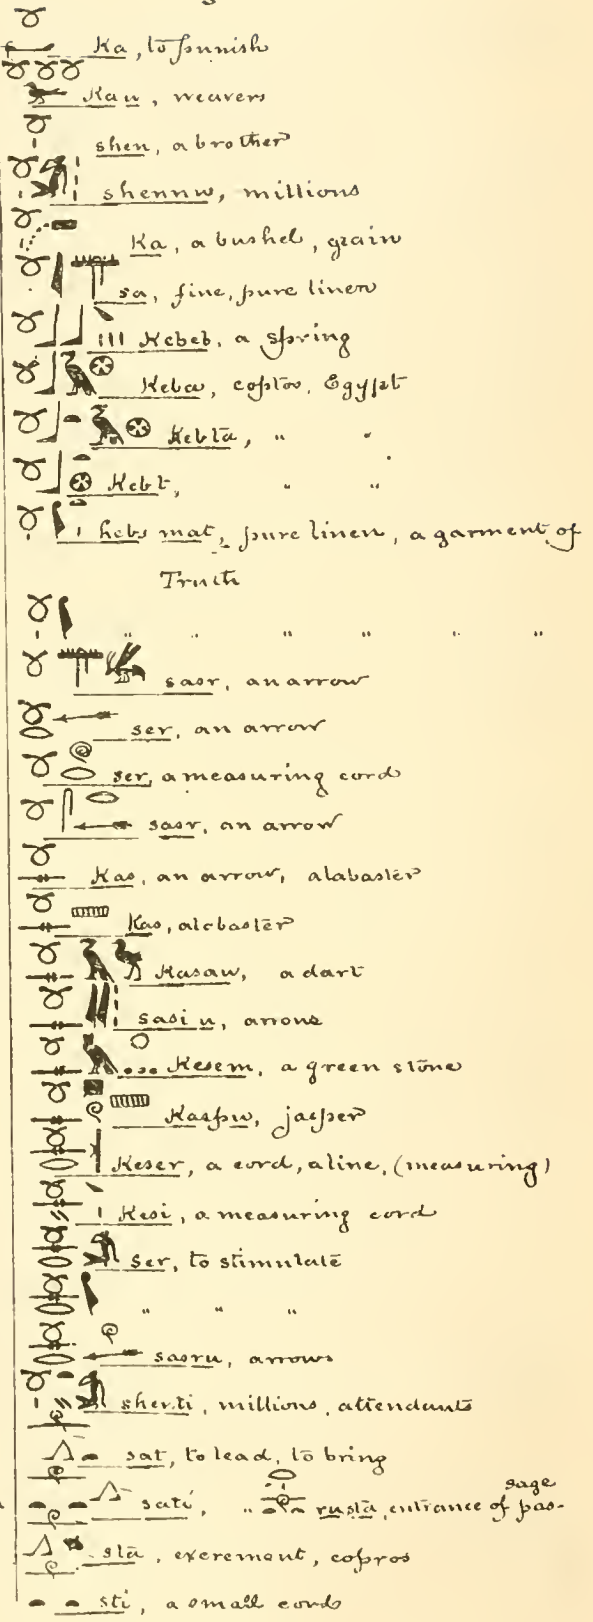 Ka, to punish
Kau, weavers
shen, a brother
shennw, millions
Ka, a bushel, grain
sa, fine, pure linen
Kebeb, a spring
Keba, coptos, Egypt
Kebta, " "
Kebt, " "
hebs mat, pure linen, a garment of
Truth
" " " " " "
sasr, an arrow
ser, an arrow
ser, a measuring cord
sasr, an arrow
Kas, an arrow, alabaster
Kas, alebaster
Kasaw, a dart
sasi u, arrows
Kesem, a green stone
Kaspw, jasper
Keser, a cord, a line, (measuring)
Kesi, a measuring cord
Ser, to stimulate
" " "
sasru, arrows
millions, attendants
sat, to lead, to bring
sati, " rusta, entrance of pas-
sage
sta, excrement, copros
sti, a small cord